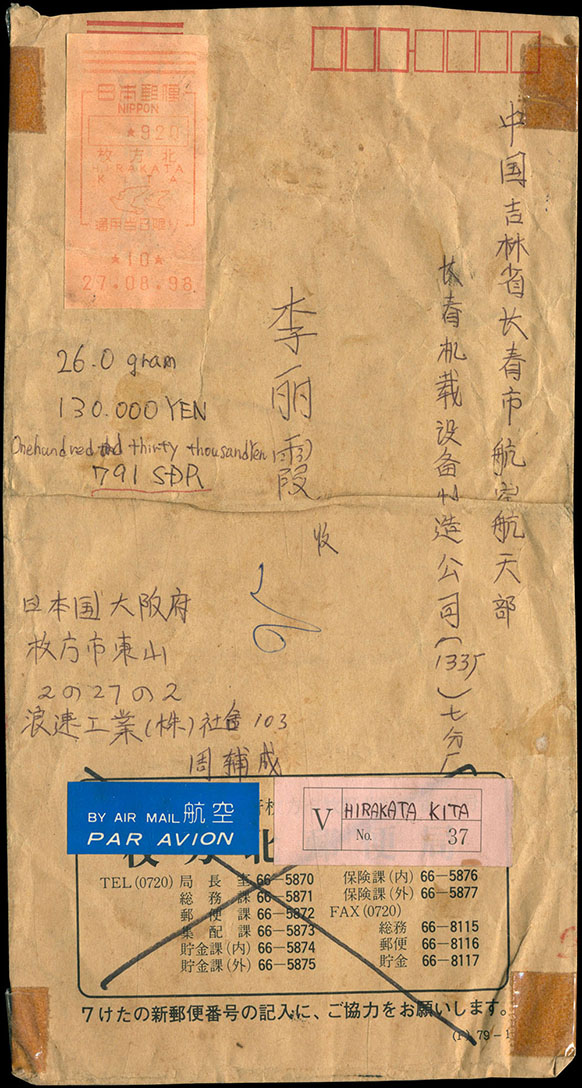 日本郵便
NIPPON
★920
枚方北
HIRAKATA
KITA
通用当日限り
★10★
27.08.98
中国吉林省长春市航空航天部
长春机载设备制造公司(133厂)七分厂
李丽霞
收
26.0 gram
130.000 YEN
Onehundred and thirty thousand Yen
791 SDR
日本国大阪府
枚方市東山
2の27の2
浪速工業(株)社舎103
周辅成
BY AIR MAIL 航空
PAR AVION
V HIRAKATA KITA
No. 37
北
TEL(0720) 局長室 66-5870
総務課 66-5871
郵便課 66-5872
集配課 66-5873
貯金課(内) 66-5874
貯金課(外) 66-5875
保険課(内) 66-5876
保険課(外) 66-5877
FAX(0720)
総務 66-8115
郵便 66-8116
貯金 66-8117
7けたの新郵便番号の記入に、ご協力をお願いします。